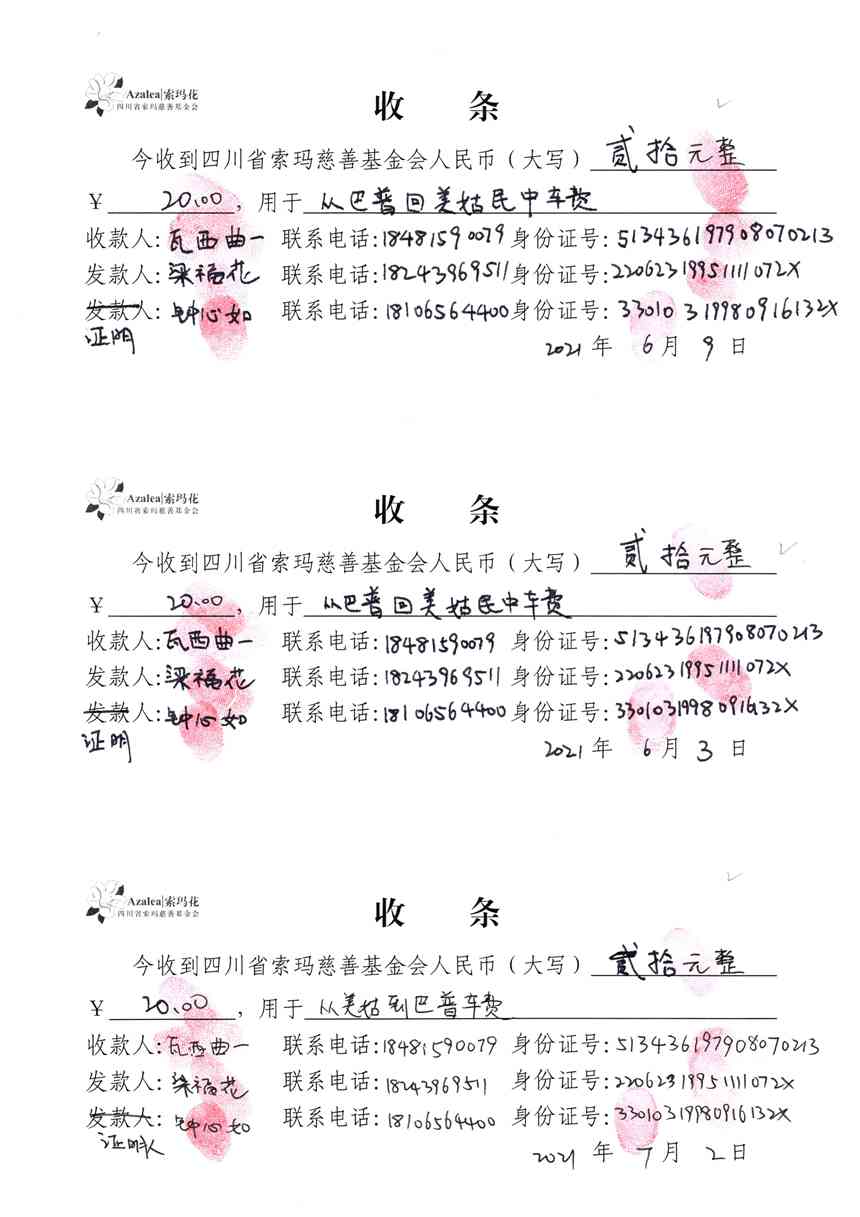 Azalea|索玛花
四川省索玛慈善基金会
收 条
今收到四川省索玛慈善基金会人民币（大写） 贰拾元整
¥ 20.00 ，用于 从巴普回美姑民中车费
收款人：瓦西曲一 联系电话：18481590079 身份证号：513436197908070213
发款人：梁福花 联系电话：18243969511 身份证号：22062319951111072X
发款人：钟心如 联系电话：18106564400 身份证号：33010319980916132X
证明
2021 年 6 月 9 日
Azalea|索玛花
四川省索玛慈善基金会
收 条
今收到四川省索玛慈善基金会人民币（大写） 贰拾元整
¥ 20.00 ，用于 从巴普回美姑民中车费
收款人：瓦西曲一 联系电话：18481590079 身份证号：513436197908070213
发款人：梁福花 联系电话：18243969511 身份证号：22062319951111072X
发款人：钟心如 联系电话：18106564400 身份证号：33010319980916132X
证明
2021 年 6 月 3 日
Azalea|索玛花
四川省索玛慈善基金会
收 条
今收到四川省索玛慈善基金会人民币（大写） 贰拾元整
¥ 20.00 ，用于 从美姑到巴普车费
收款人：瓦西曲一 联系电话：18481590079 身份证号：513436197908070213
发款人：梁福花 联系电话：18243969511 身份证号：22062319951111072X
发款人：钟心如 联系电话：18106564400 身份证号：33010319980916132X
证明人
2021 年 7 月 2 日